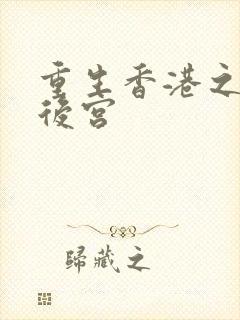 重生香港之
後宮
歸藏之